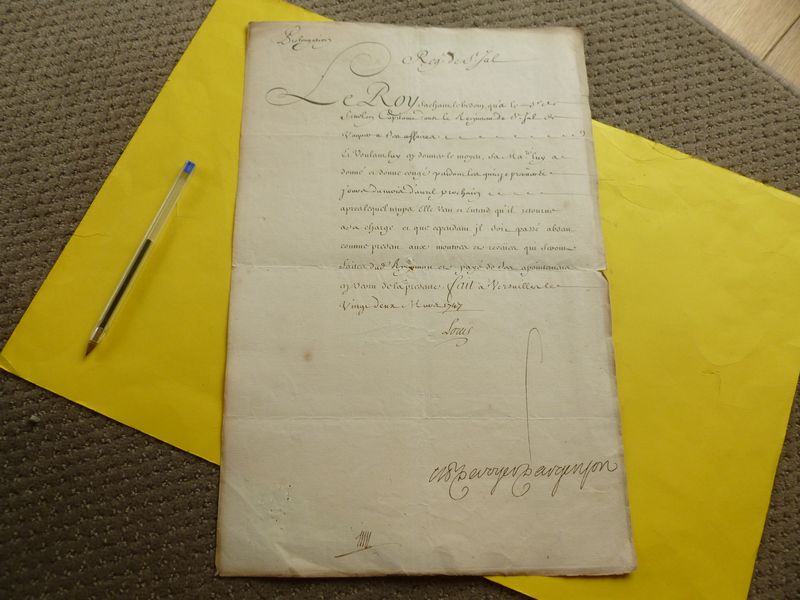 Prolongation
Reg.t de S.t Jal
Le Roy sachant le besoin qu'a le S.r de
Capitaine dans le Regiment de S.t Jal de
Vaquer a ses affaires
Et Voulant luy en donner le moyen, Sa Ma.té luy a
donné et donne congé pendant les quinze premiers
jours du mois d'avril prochain
apres lequel temps Elle veut et entend qu'il retourne
a sa charge et que cependant il soit passé absent
comme present aux montres et reveües qui seront
faites dud. Regiment et payé de ses apointemens
en vertu de la presente. Fait à Versailles le
Vingt deux Mars 1747
Louis
M de Voyer d'argenson